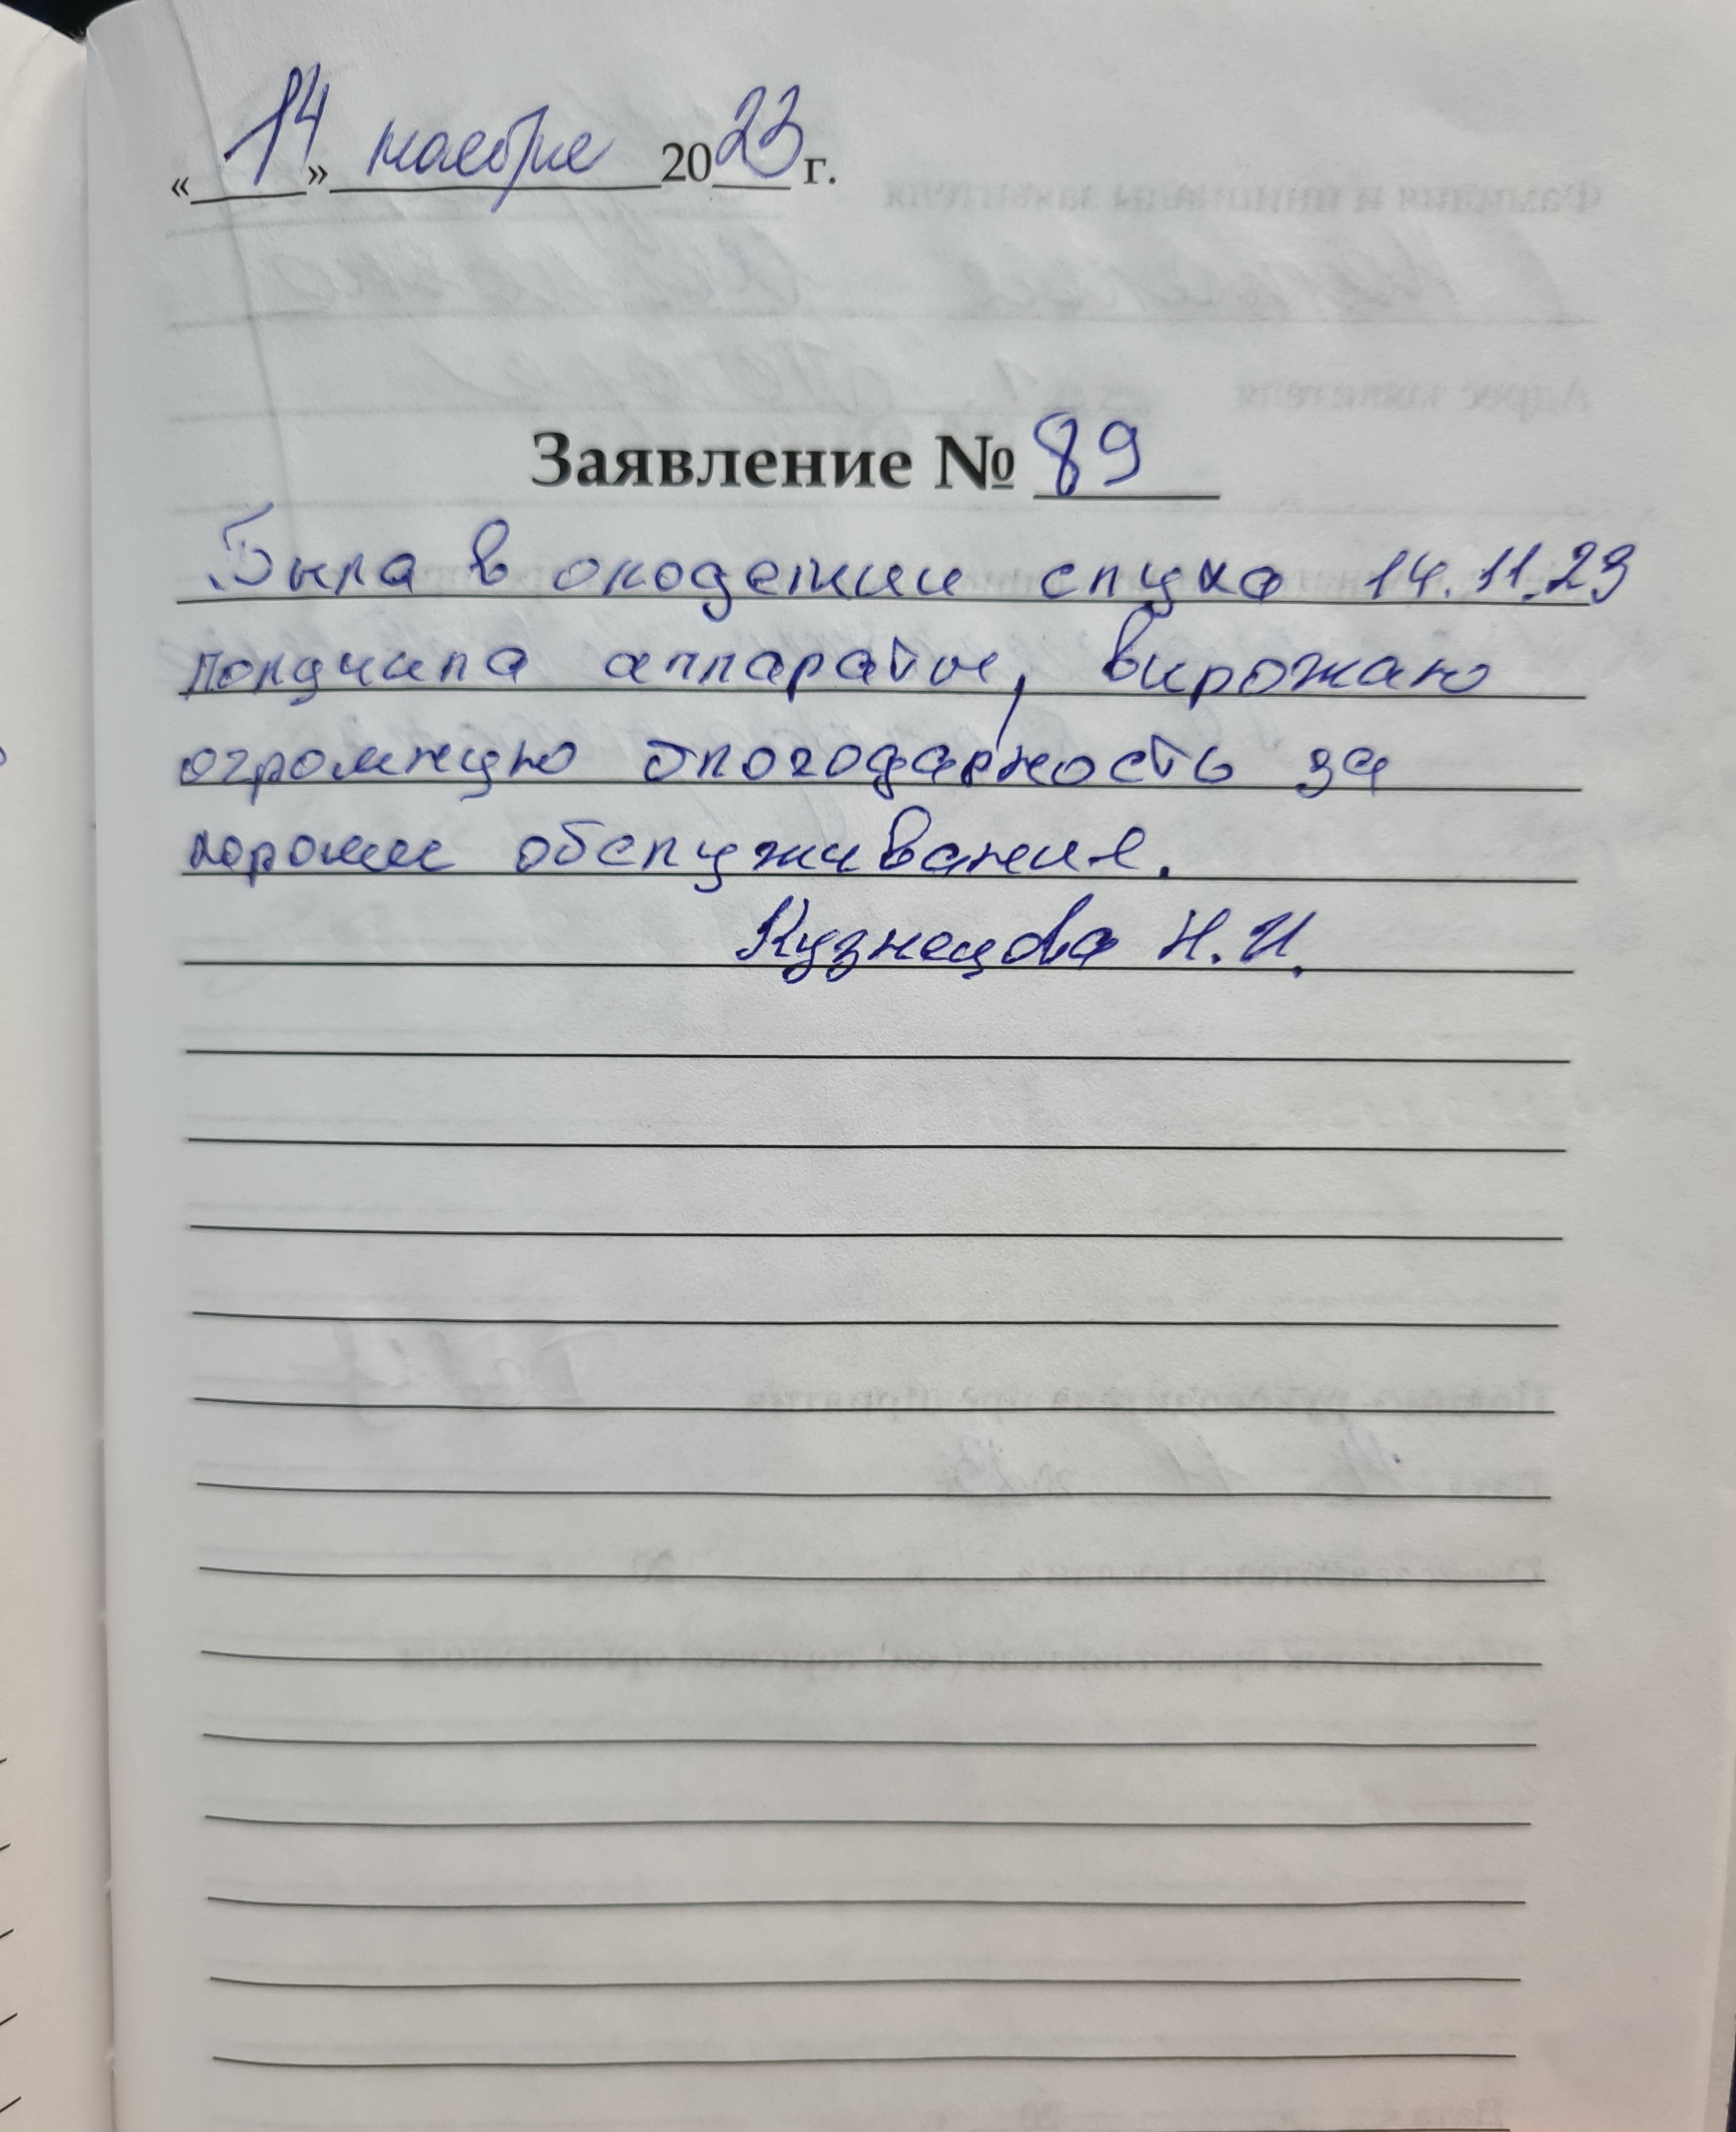 «14» ноября 2023 г.
Заявление № 89
Была в окодемии слуха 14.11.23
получила аппараты, виражаю
огромную благодарность за
хорошее обслуживание.
Кузнецова Н.И.